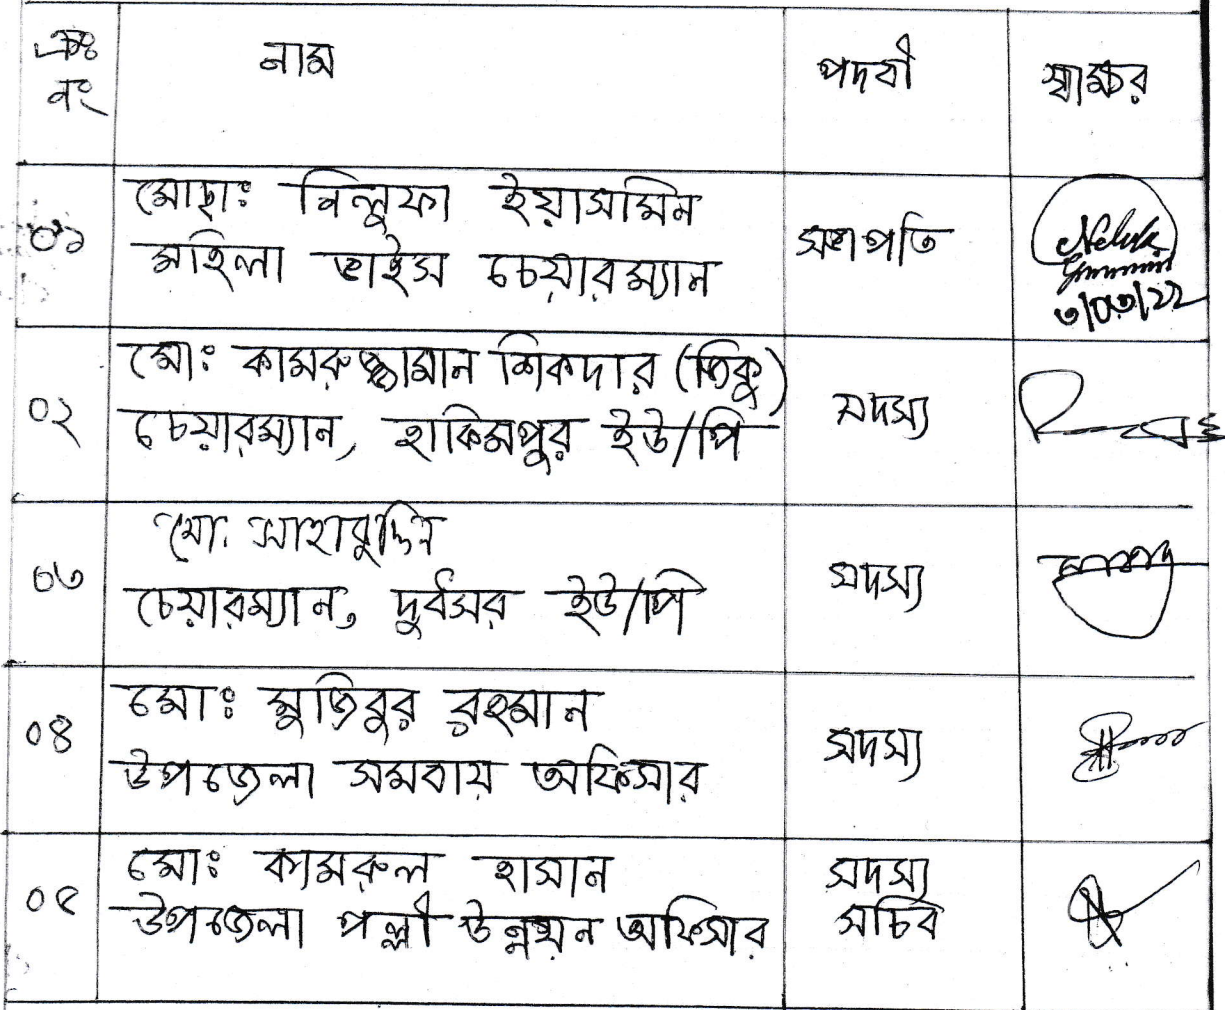 ক্রঃ নং নাম পদবী স্বাক্ষর
০১ মোছাঃ নিলুফা ইয়াসমিন
মহিলা ভাইস চেয়ারম্যান সভাপতি
৩/০৩/২২
০২ মোঃ কামরুজ্জামান শিকদার (জিকু)
চেয়ারম্যান, হাকিমপুর ইউ/পি সদস্য
মো. সাহাবুদ্দিন
০৩ চেয়ারম্যান, দুর্বসর ইউ/পি সদস্য
০৪ মোঃ মুজিবুর রহমান
উপজেলা সমবায় অফিসার সদস্য
০৫ মোঃ কামরুল হাসান সদস্য
উপজেলা পল্লী উন্নয়ন অফিসার সচিব